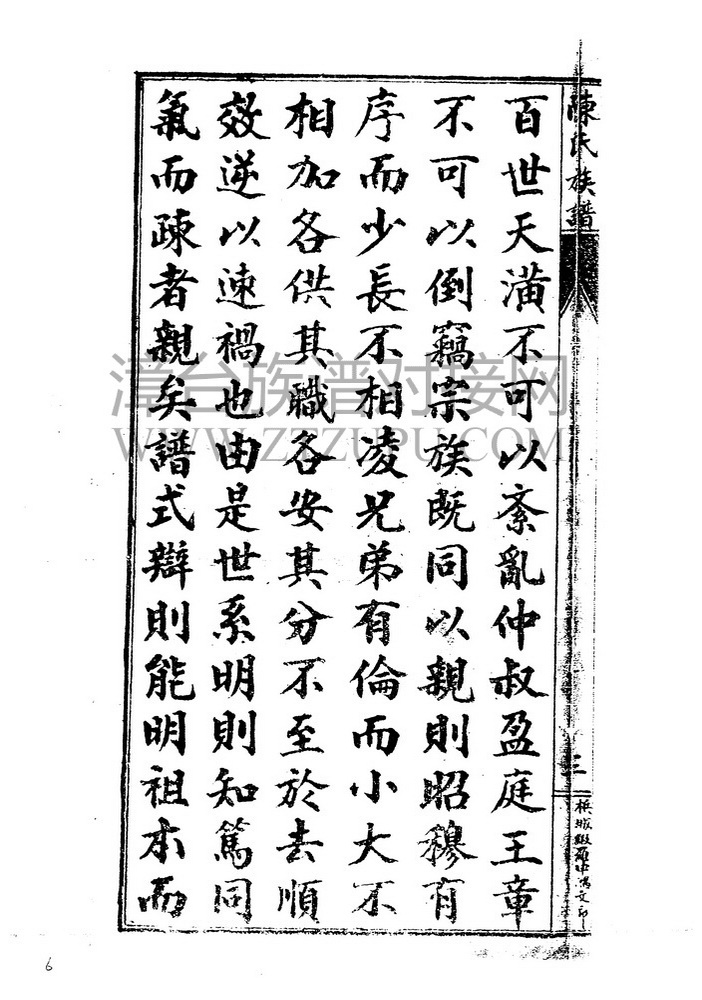 陳氏族譜
三
百世天潢不可以紊亂仲叔盈庭王章
不可以倒竊宗族既同以親則昭穆有
序而少長不相凌兄弟有倫而小大不
相加各供其職各安其分不至於去順
效逆以速禍也由是世系明則知篤同
氣而疎者親矣譜式辯則能明祖本而
漳台族谱对接网
WWW.ZTZUPU.COM
6